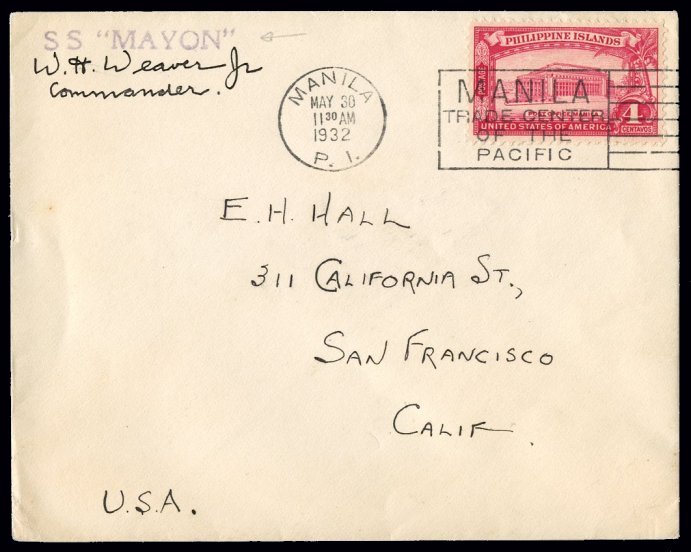 SS "MAYON"
W. H. Weaver Jr
Commander.
MANILA
MAY 30
11 30 AM
1932
P. I.
PHILIPPINE ISLANDS
UNITED STATES OF AMERICA
4
CENTAVOS
MANILA
TRADE CENTER
OF THE
PACIFIC
E. H. HALL
311 CALIFORNIA ST.,
SAN FRANCISCO
CALIF.
U.S.A.